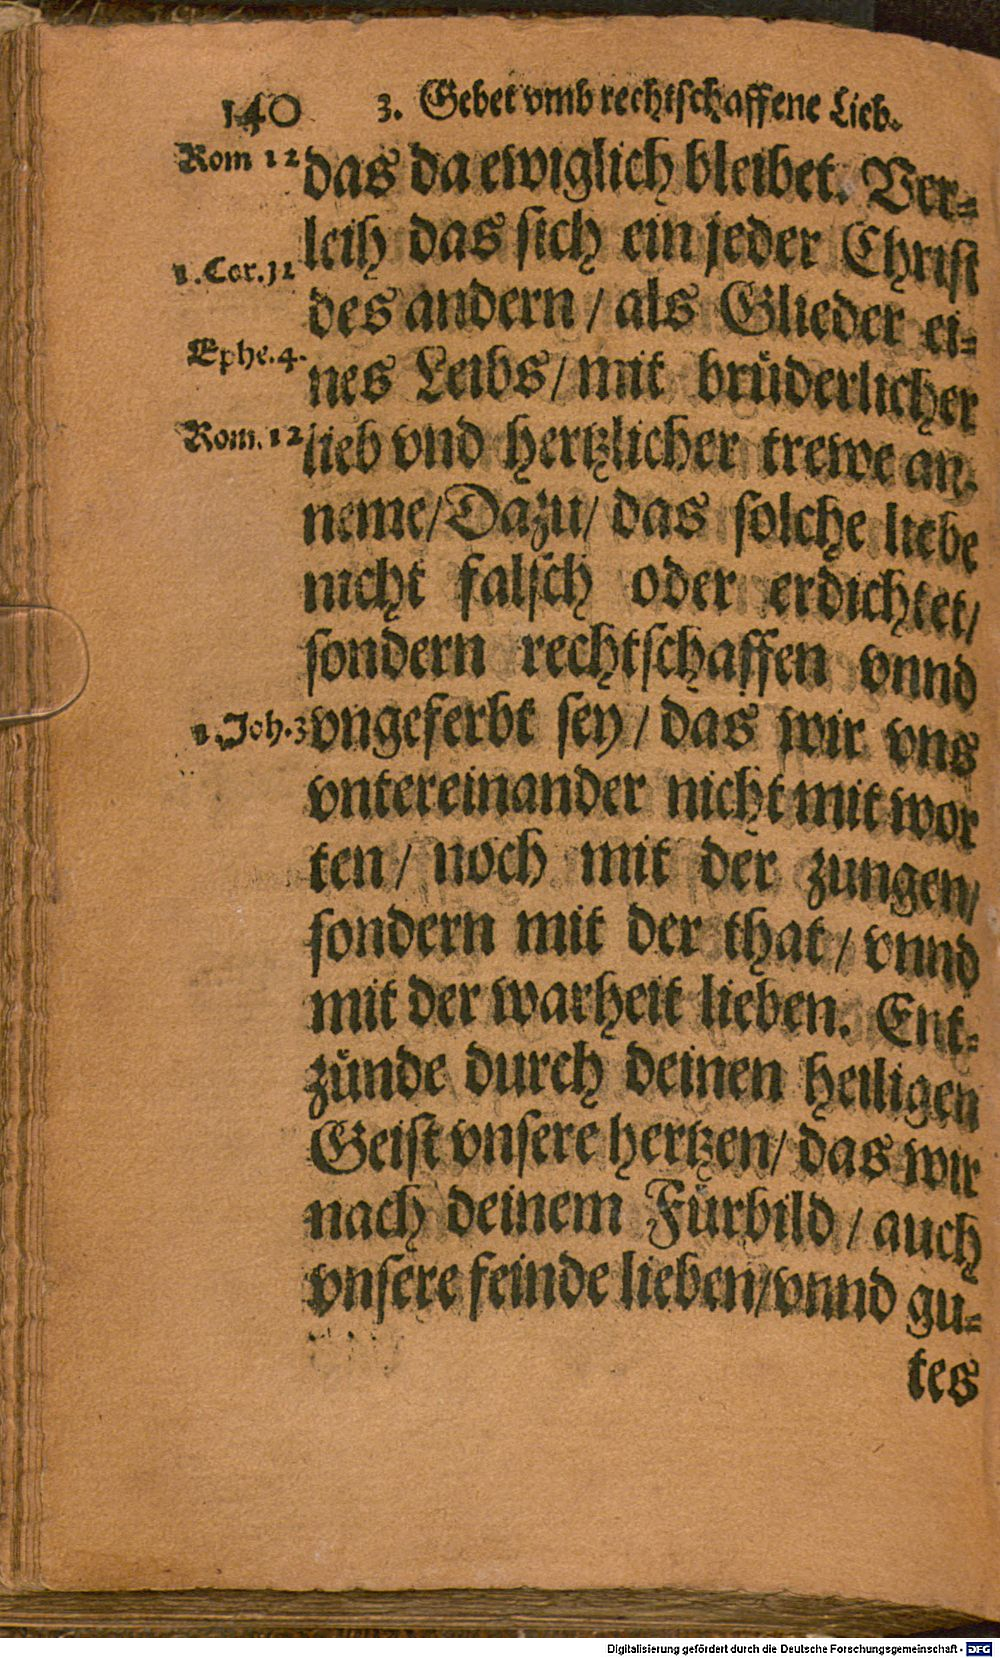 140 3. Gebet vmb rechtschaffene Lieb.
Rom 12 das da ewiglich bleibet. Ver-
leih das sich ein jeder Christ
1. Cor. 12
des andern / als Glieder ei-
Ephe. 4.
nes Leibs / mit brüderlicher
Rom. 12 lieb vnd hertzlicher trewe an-
neme / Dazu / das solche liebe
nicht falsch oder erdichtet /
sondern rechtschaffen vnnd
1. Joh. 3 vngeferbt sey / das wir vns
vntereinander nicht mit wor
ten / noch mit der zungen /
sondern mit der that / vnnd
mit der warheit lieben. Ent-
zünde durch deinen heiligen
Geist vnsere hertzen / das wir
nach deinem Fürbild / auch
vnsere feinde lieben / vnnd gu-
tes
Digitalisierung gefördert durch die Deutsche Forschungsgemeinschaft - DFG